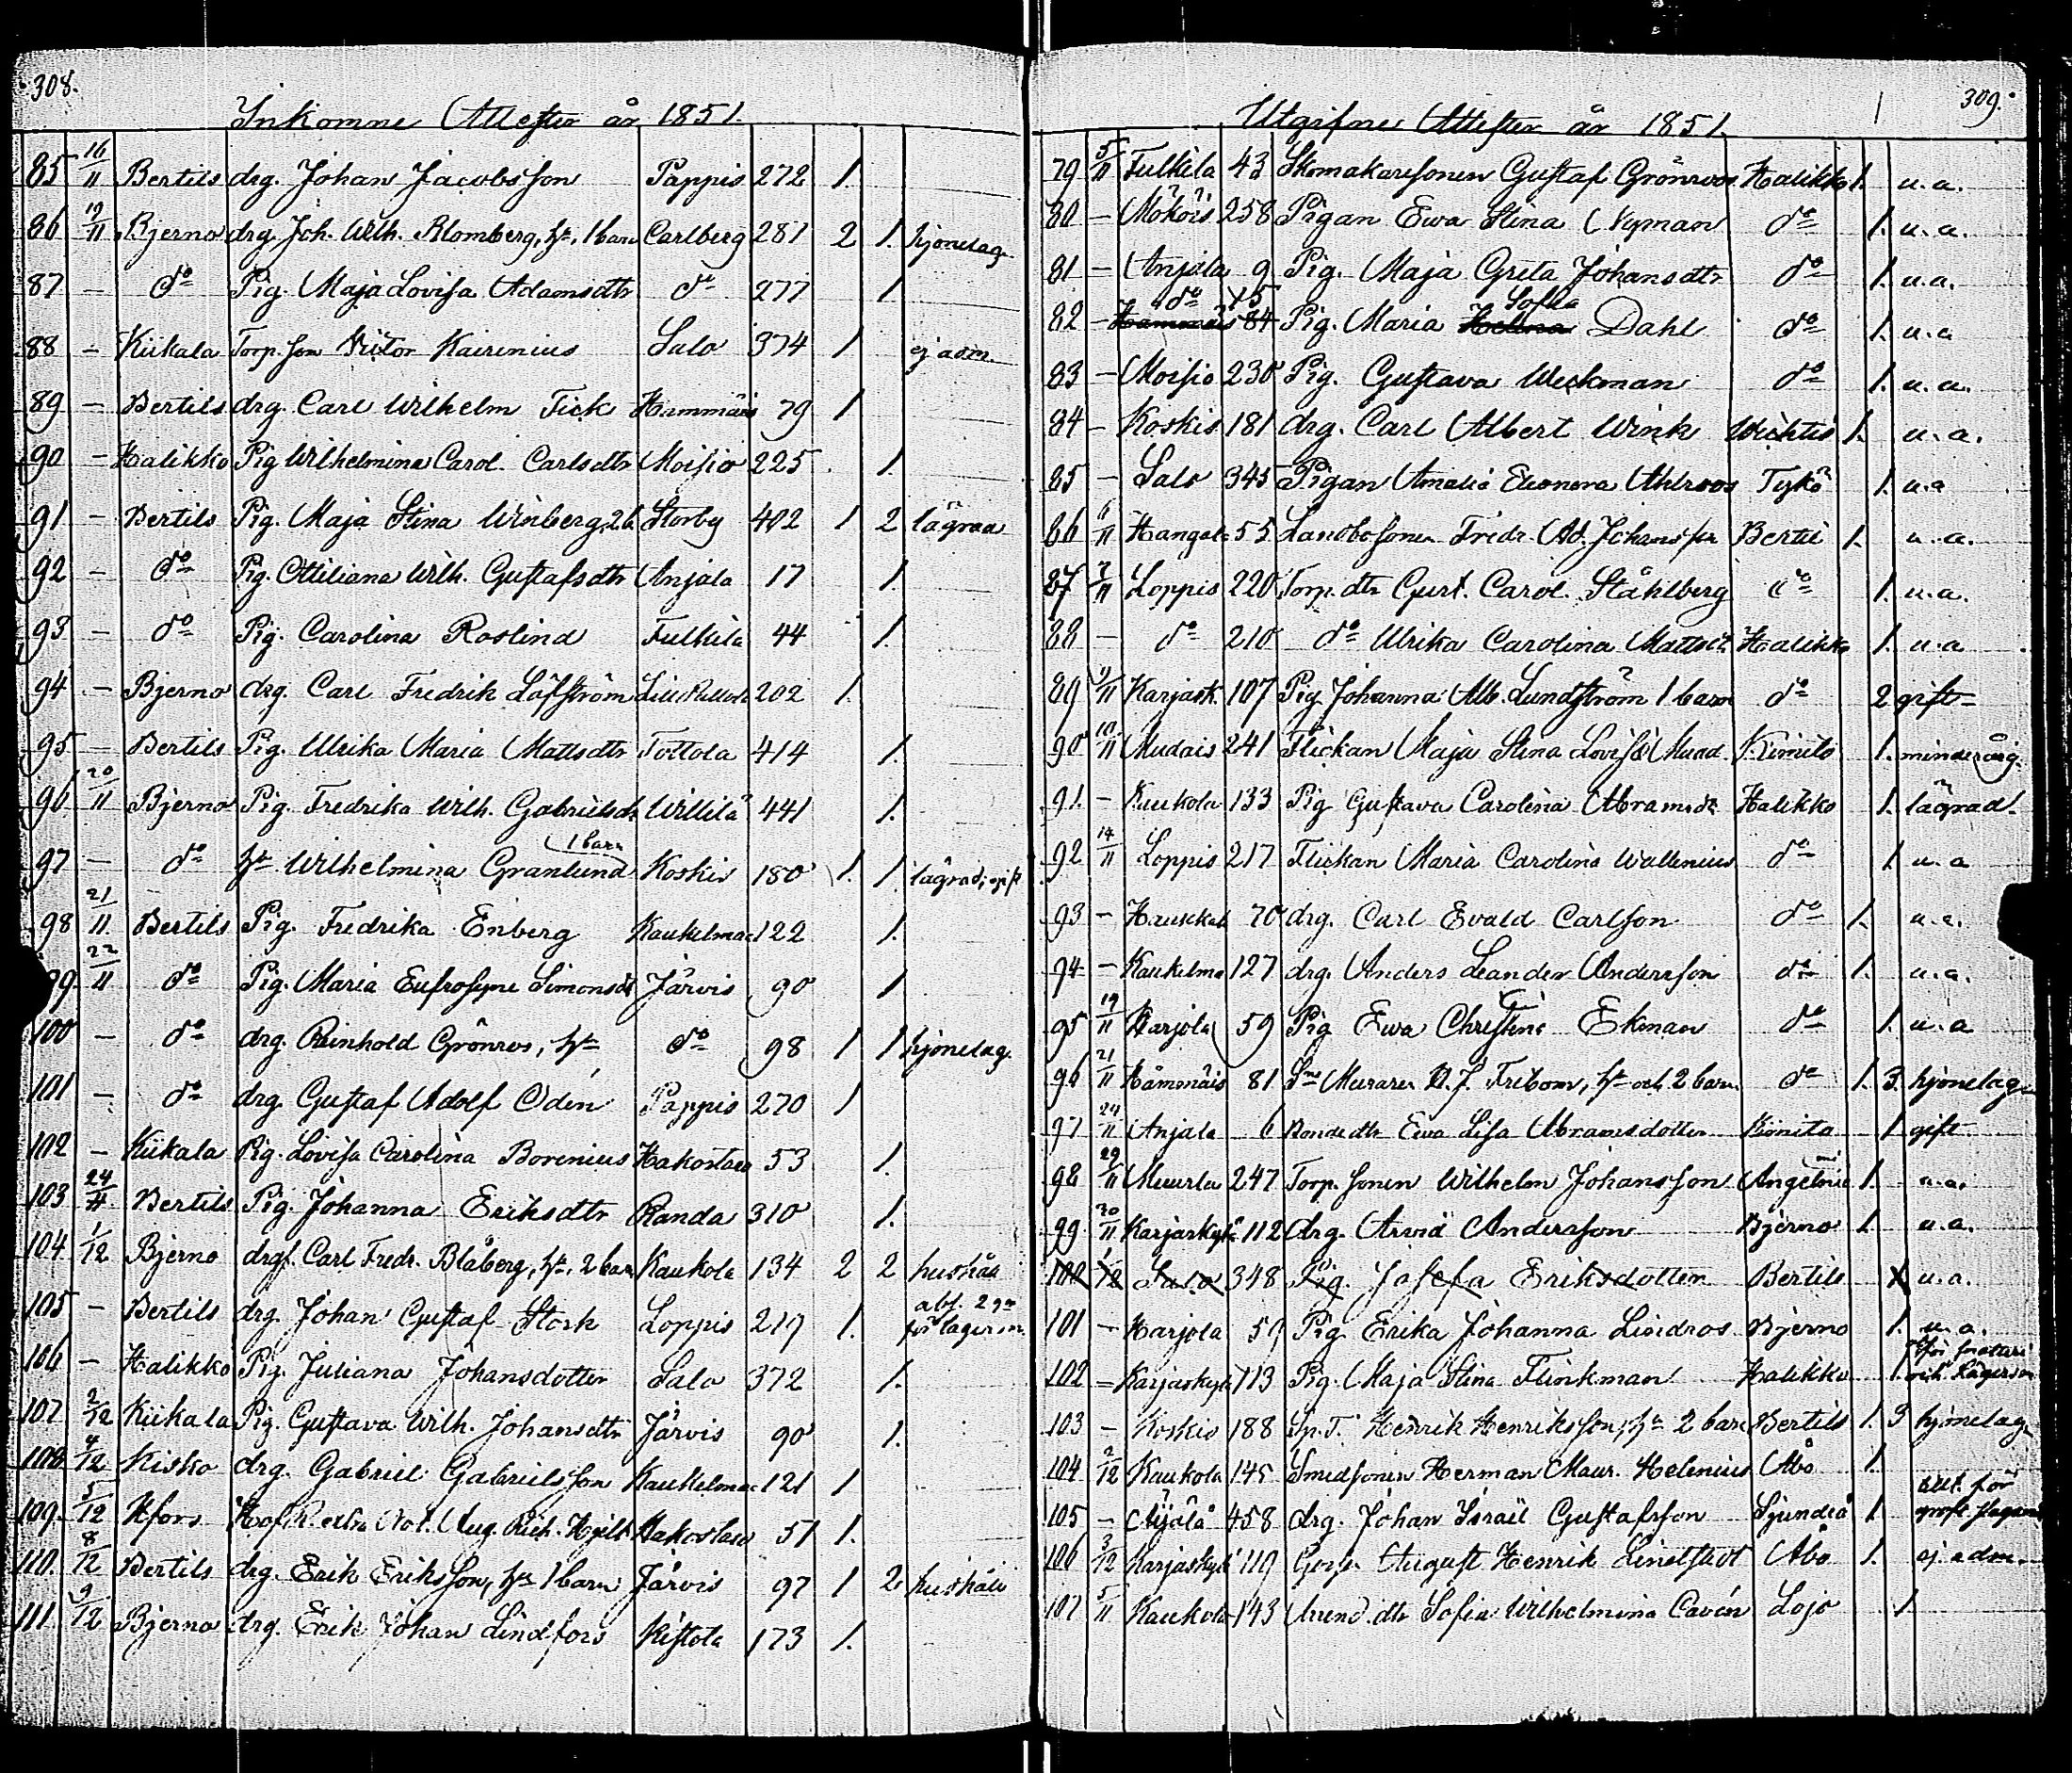 308.
Inkomne Attester år 1851.
85 16/11 Bertils drg. Johan Jacobsson Pappis 272 1.
86 19/11 Bjerno drg Joh. Wilh. Blomberg, h., 1 barn Carlberg 281 2 1. hjonelag
87 – do Pig. Maja Lovisa Adamsdtr do 277 1
88 – Kiikala Torp. son Victor Kairenius Salo 374 1 ej adm.
89 – Bertils drg. Carl Wilhelm Fick Hammäis 79 1
90 – Halikko Pig Wilhelmina Carol. Carlsdtr Moisio 225 1.
91 – Bertils Pig. Maja Stina Winberg, 2 b. Storby 402 1 2 lägrad
92 – do Pig. Ottiliana Wilh. Gustafsdtr Anjala 17 1.
93 – do Pig. Carolina Roslind Fulkila 44 1.
94 – Bjerno drg. Carl Fredrik Löfström 202 1.
95 – Bertils Pig. Ulrika Maria Mattsdtr Tottola 414 1.
96 20/11 Bjerno Pig. Fredrika Wilh. Gabrielsdr Willilä 441 1.
1 barn
97 – do h. Wilhelmina Granlund Koskis 180 1. 1. lägrad,
98 21/11 Bertils Pig. Fredrika Enberg Kaukelmaa 122 1.
99. 22/11 do Pig. Maria Eufrosyne Simonsdr Järvis 90 1
100 – do drg. Reinhold Grönros, h. do 98 1 1 hjonelag
101 – do drg. Gustaf Adolf Odén Pappis 270 1
102 – Kiikala Pig. Lovisa Carolina Borenius Hakostaro 53 1.
103 24/11 Bertils Pig. Johanna Eriksdtr Randa 310 1.
104 1/12 Bjerno drg. Carl Fredr. Blåberg, h., 2 barn Kaukola 134 2 2 hushåll
105 – Bertils drg. Johan Gustaf Stork Loppis 217 1. abs. 2 gr för lägersm.
106 – Halikko Pig. Juliana Johansdotter Salo 372 1.
107 2/12 Kiikala Pig. Gustava Wilh. Johansdtr Järvis 90 1.
108 4/12 Kisko drg. Gabriel Gabrielsson Kaukelmaa 121 1
109. 5/12 Hfors Aug. Rich. Hakostaro 51 1.
110. 8/12 Bertils drg. Erik Eriksson, h. 1 barn Järvis 97 1 2 hushåll
111 9/12 Bjerno drg. Erik Johan Lindfors Kistola 173 1.
309.
Utgifne Attester år 1851.
79 5/11 Fulkila 43 Skomakaresonen Gustaf Grönroos Halikko 1. u.a.
80 – Mököis 258 Pigan Ewa Stina Nyman do 1. u.a.
81 – Anjala 9 Pig. Maja Greta Johansdtr do 1. u.a.
do 15 Sofia
82 – Hammäis 84 Pig. Maria Helena Dahl do 1. u.a
83 – Moisio 230 Pig. Gustava Weckman do 1. u.a.
84 – Koskis 181 drg. Carl Albert Wink Wichtis 1. u.a.
85 – Salo 345 Pigan Amalia Eleonora Ahlroos Tykö 1. u.a
86 6/11 Hangola 55 Landbosonen Fredr. Ad. Johansson Bertil 1. u.a.
87 7/11 Loppis 220 Torp. dtr Gust. Carol. Ståhlberg do 1. u.a.
88 – do 210 do Ulrika Carolina Mattsdr Halikko 1. u.a
89 9/11 Karjask. 107 Pig Johanna Alb. Lundström 1 barn do 2 gift
90 10/11 Mudais 241 Flickan Maja Stina Lovisa Kimito 1. minderårig.
91. – Kaukola 133 Pig Gustava Carolina Abramsdr Halikko 1. lägrad
92 14/11 Loppis 217 Flickan Maria Carolina Wallenius do 1 u.a
93 – 70 drg. Carl Evald Carlson do 1. u.a.
94 – Kaukelma 127 drg. Anders Leander Andersson do 1. u.a.
95 19/11 Karjola 59 Pig Ewa Christina Ekman do 1. u.a
96 21/11 Hämmäis 81 Muraren Fribom, h. och 2 barn do 1. 3. hjonelag
97 24/11 Anjala 6 Bondedtr Ewa Lisa Abramsdotter Kimito 1 gift
98 29/11 Muurla 247 Torp. sonen Wilhelm Johansson Angelnie 1. u.a.
99 30/11 Karjaskylä 112 drg. Arvid Andersson Bjerno 1. u.a.
100 1/12 Salo 348 Pig. Josefa Eriksdotter Bertils 1 u.a.
101 – Karjola 59 Pig Erika Johanna Lindros Bjerno 1. u.a.
102 – Karjaskylä 113 Pig. Maja Stina Flinkman Halikko 1. för snatteri och lägersm
103 – Koskis 188 Sp. T. Henrik Henriksson, h. 2 barn Bertils 1. 3 hjonelag
104 2/12 Kaukola 145 Smedsonen Herman Maur. Helenius Åbo 1.
105 – Myälä 458 drg. Johan Israël Gustafsson Sjundeå 1.
106 3/12 Karjaskylä 119 August Henrik Lindstedt Åbo 1. ej adm.
107 5/11 Kaukola 143 Arrend. dtr Sofia Wilhelmina Cavén Lojo 1